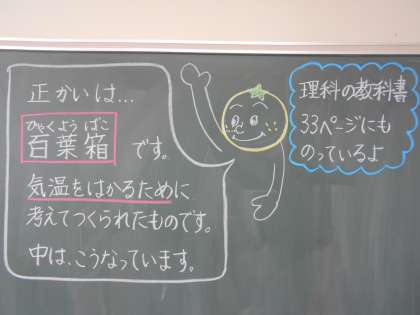 正かいは…
ひゃくようばこ
百葉箱です。
気温をはかるために
考えてつくられたものです。
中は、こうなっています。
理科の教科書
33ページにも
のっているよ